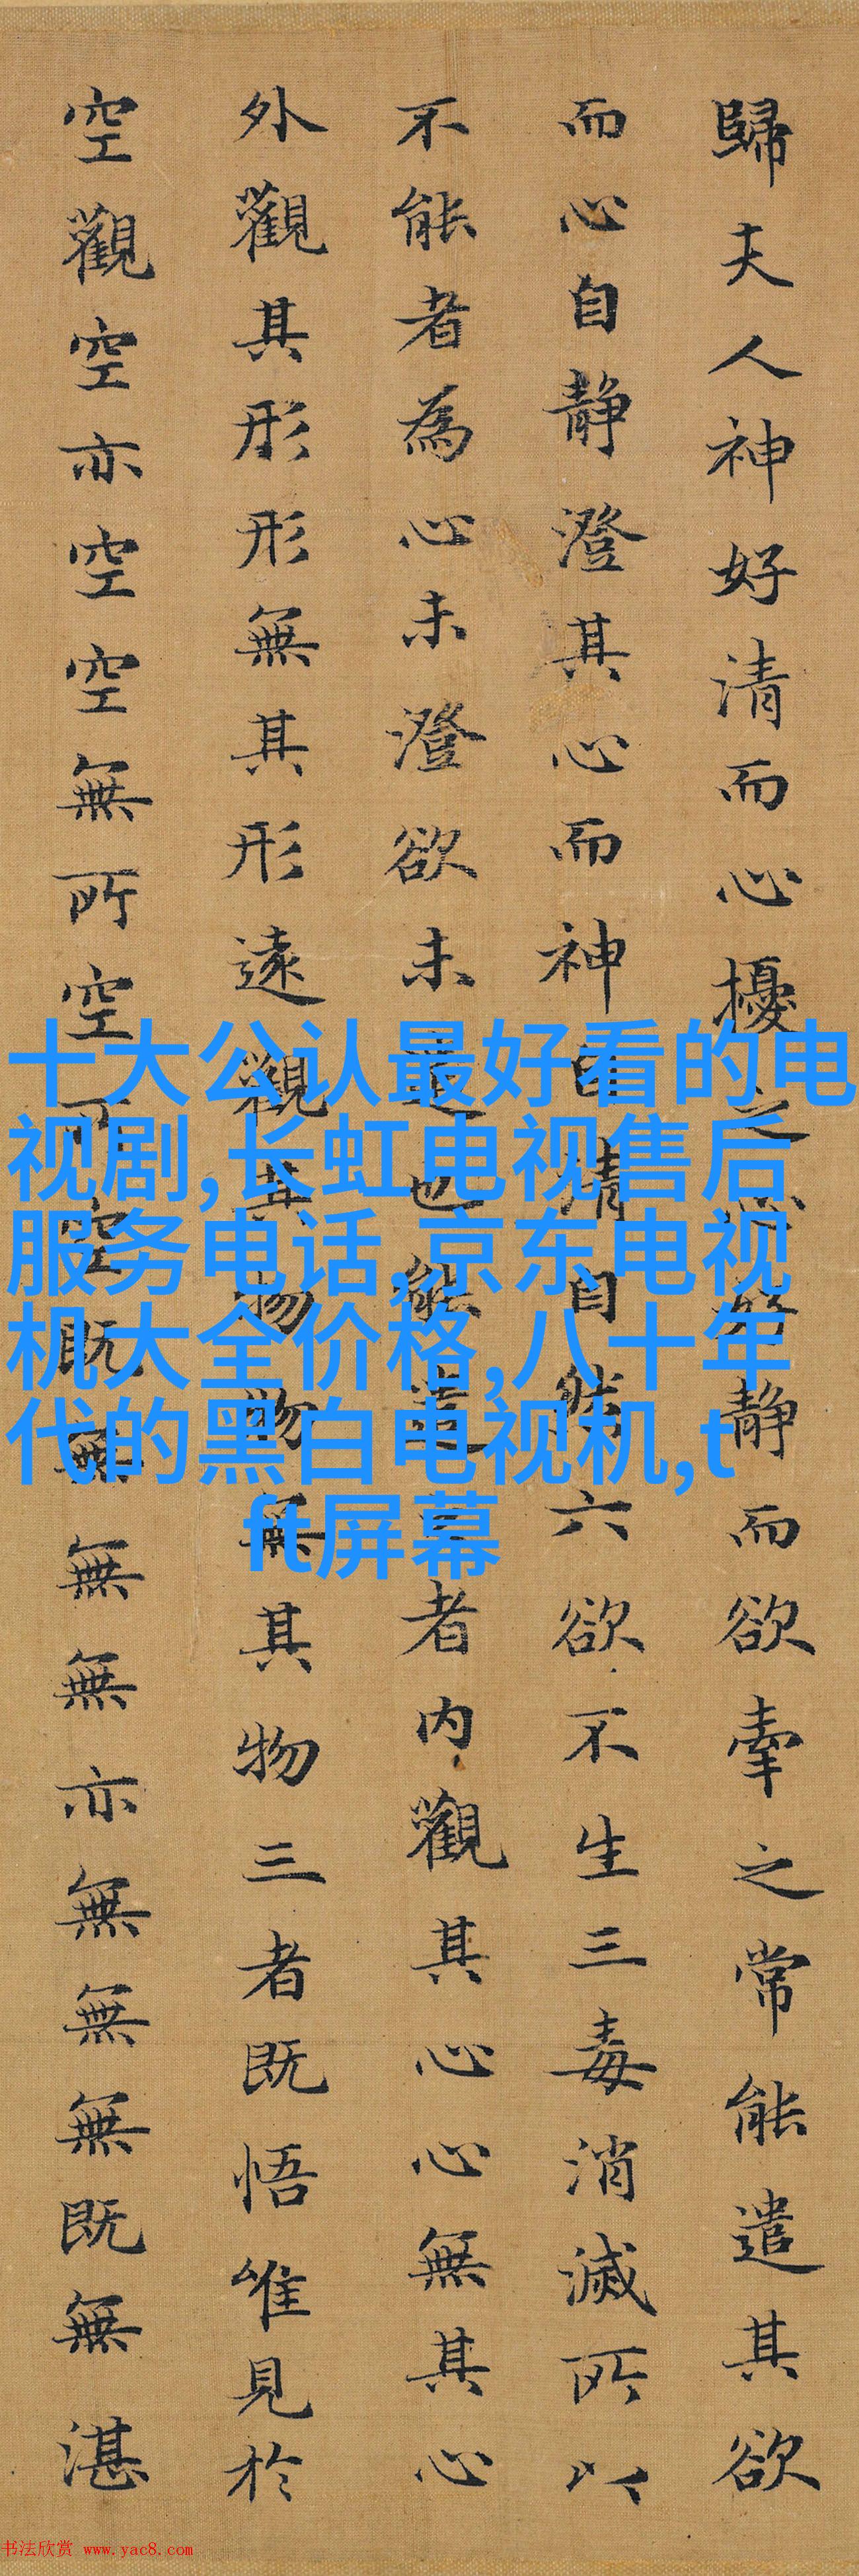 歸夫人神好清而心擾之心好静而欲牽之常能遣其欲
而心自静澄其心而神自清自然六欲不生三毒消滅所以
不能者為心未澄欲未遣也能遣之者内觀其心心無其心
外觀其形形無其形遠觀其物物無其物三者既悟唯見於
空觀空亦空空無所空所空既無無無亦無無無既無湛
十大公认最好看的电
视剧,长虹电视售后
服务电话,京东电视
机大全价格,八十年
代的黑白电视机,t
ft屏幕
书法欣赏 www.yac8.com